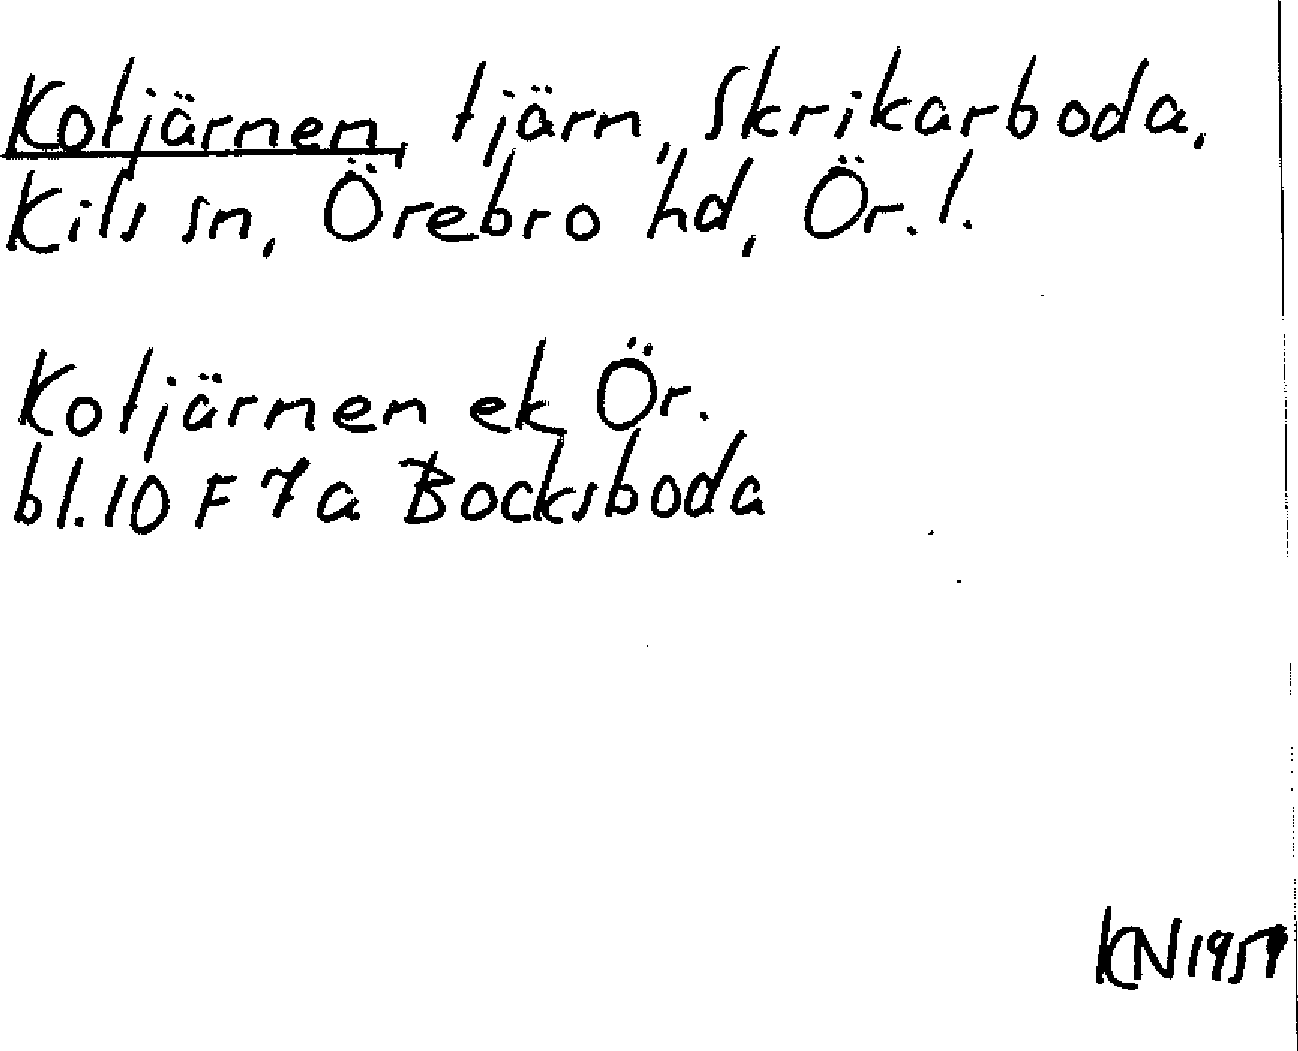 Kotjärnen, tjärn, Skrikarboda,
Kils sn, Örebro hd, Ör. l.
Kotjärnen ek Ör.
bl. 10 F 7 a Bocksboda